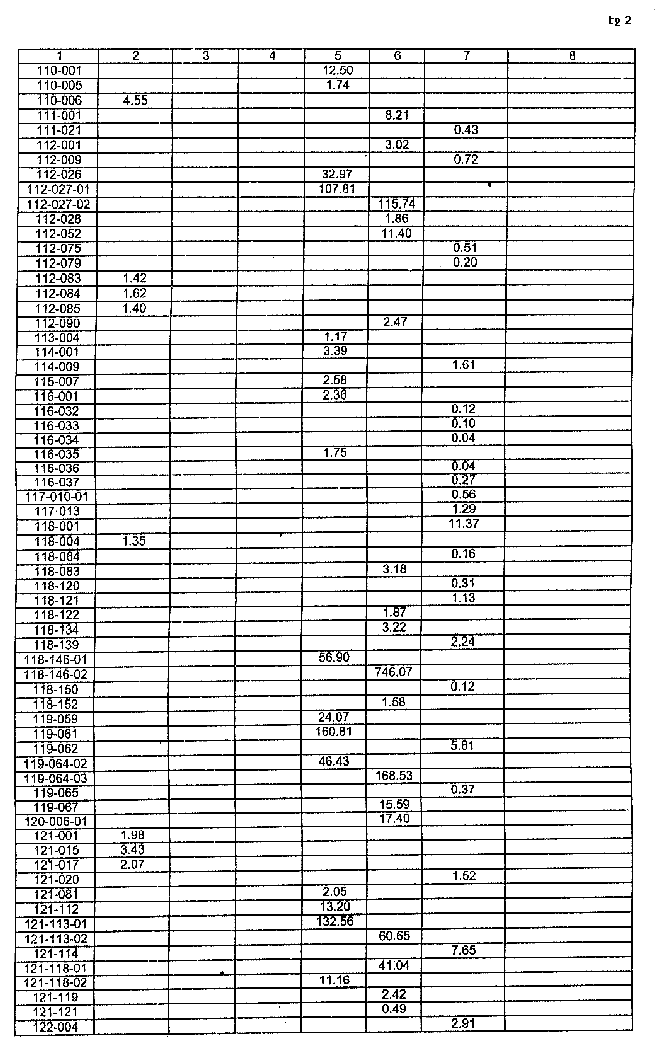 tg 2
1 2 3 4 5 6 7 8
110-001 12.50
110-005 1.74
110-006 4.55
111-001 8.21
111-021 0.43
112-001 3.02
112-009 0.72
112-026 32.97
112-027-01 107.81
112-027-02 115.74
112-028 1.86
112-052 11.40
112-075 0.51
112-079 0.20
112-083 1.42
112-084 1.62
112-085 1.40
112-090 2.47
113-004 1.17
114-001 3.39
114-009 1.61
115-007 2.58
116-001 2.36
116-032 0.12
116-033 0.10
116-034 0.04
116-035 1.75
116-036 0.04
116-037 0.27
117-010-01 0.56
117-013 1.29
118-001 11.37
118-004 1.35
118-084 0.16
118-083 3.18
118-120 0.31
118-121 1.13
118-122 1.87
118-134 3.22
118-139 2.24
118-146-01 56.90
118-146-02 746.07
118-150 0.12
118-152 1.58
119-059 24.07
119-061 160.81
119-062 5.81
119-064-02 46.43
119-064-03 168.53
119-065 0.37
119-067 15.59
120-006-01 17.40
121-001 1.98
121-015 3.43
121-017 2.07
121-020 1.52
121-081 2.05
121-112 13.20
121-113-01 132.56
121-113-02 60.65
121-114 7.65
121-118-01 41.04
121-118-02 11.16
121-119 2.42
121-121 0.49
122-004 2.91